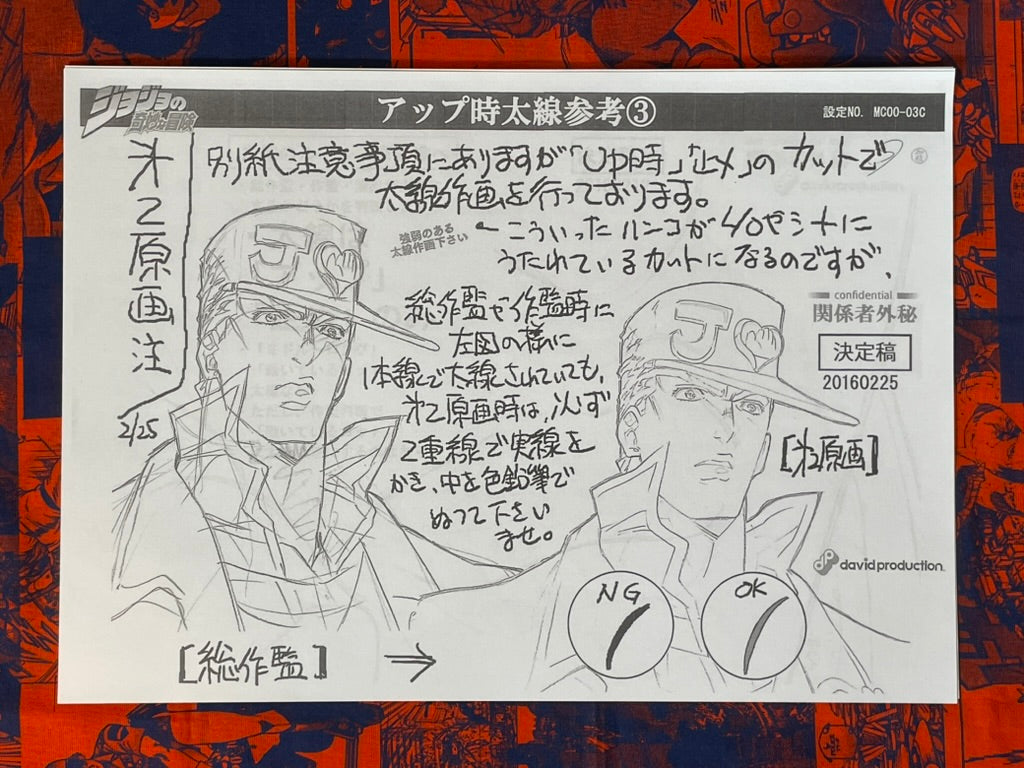 ジョジョの
奇妙な冒険
アップ時太線参考③
設定NO. MC00-03C
㐧2原画注
2/25
別紙注意事項にありますが「UP時」「止メ」のカットで
太線作画を行っております。
強弱のある
太線作画下さい
こういったハンコが40やシートに
うたれているカットになるのですが、
総作監や作監時に
左図の様に
1本線で太線されていても、
㐧2原画時は、必ず
2重線で実線を
かき、中を色鉛筆で
ぬって下さい
ませ。
confidential
関係者外秘
決定稿
20160225
[㐧2原画]
davidproduction.
NG
OK
[総作監] →
J
J